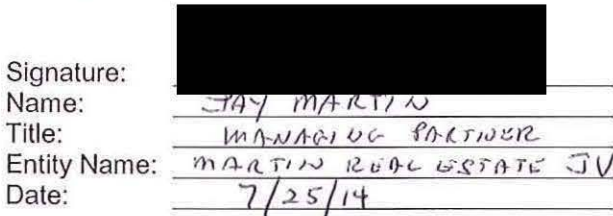 Signature:
Name: JAY MARTIN
Title: MANAGING PARTNER
Entity Name: MARTIN REAL ESTATE JV
Date: 7/25/14